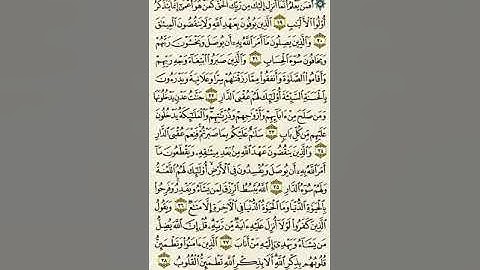 ۞ أَفَمَن يَعْلَمُ أَنَّمَآ أُنزِلَ إِلَيْكَ مِن رَّبِّكَ ٱلْحَقُّ كَمَنْ هُوَ أَعْمَىٰٓ إِنَّمَا يَتَذَكَّرُ
أُو۟لُوا۟ ٱلْأَلْبَٰبِ ١٩ ٱلَّذِينَ يُوفُونَ بِعَهْدِ ٱللَّهِ وَلَا يَنقُضُونَ ٱلْمِيثَٰقَ
٢٠ وَٱلَّذِينَ يَصِلُونَ مَآ أَمَرَ ٱللَّهُ بِهِۦٓ أَن يُوصَلَ وَيَخْشَوْنَ رَبَّهُمْ
وَيَخَافُونَ سُوٓءَ ٱلْحِسَابِ ٢١ وَٱلَّذِينَ صَبَرُوا۟ ٱبْتِغَآءَ وَجْهِ رَبِّهِمْ
وَأَقَامُوا۟ ٱلصَّلَوٰةَ وَأَنفَقُوا۟ مِمَّا رَزَقْنَٰهُمْ سِرًّا وَعَلَانِيَةً وَيَدْرَءُونَ
بِٱلْحَسَنَةِ ٱلسَّيِّئَةَ أُو۟لَٰٓئِكَ لَهُمْ عُقْبَى ٱلدَّارِ ٢٢ جَنَّٰتُ عَدْنٍ يَدْخُلُونَهَا
وَمَن صَلَحَ مِنْ ءَابَآئِهِمْ وَأَزْوَٰجِهِمْ وَذُرِّيَّٰتِهِمْ وَٱلْمَلَٰٓئِكَةُ يَدْخُلُونَ
عَلَيْهِم مِّن كُلِّ بَابٍ ٢٣ سَلَٰمٌ عَلَيْكُم بِمَا صَبَرْتُمْ فَنِعْمَ عُقْبَى ٱلدَّارِ
٢٤ وَٱلَّذِينَ يَنقُضُونَ عَهْدَ ٱللَّهِ مِنۢ بَعْدِ مِيثَٰقِهِۦ وَيَقْطَعُونَ مَآ
أَمَرَ ٱللَّهُ بِهِۦٓ أَن يُوصَلَ وَيُفْسِدُونَ فِى ٱلْأَرْضِ أُو۟لَٰٓئِكَ لَهُمُ ٱللَّعْنَةُ
وَلَهُمْ سُوٓءُ ٱلدَّارِ ٢٥ ٱللَّهُ يَبْسُطُ ٱلرِّزْقَ لِمَن يَشَآءُ وَيَقْدِرُ وَفَرِحُوا۟
بِٱلْحَيَوٰةِ ٱلدُّنْيَا وَمَا ٱلْحَيَوٰةُ ٱلدُّنْيَا فِى ٱلْءَاخِرَةِ إِلَّا مَتَٰعٌ ٢٦ وَيَقُولُ
ٱلَّذِينَ كَفَرُوا۟ لَوْلَآ أُنزِلَ عَلَيْهِ ءَايَةٌ مِّن رَّبِّهِۦ قُلْ إِنَّ ٱللَّهَ يُضِلُّ
مَن يَشَآءُ وَيَهْدِىٓ إِلَيْهِ مَنْ أَنَابَ ٢٧ ٱلَّذِينَ ءَامَنُوا۟ وَتَطْمَئِنُّ
قُلُوبُهُم بِذِكْرِ ٱللَّهِ أَلَا بِذِكْرِ ٱللَّهِ تَطْمَئِنُّ ٱلْقُلُوبُ ٢٨